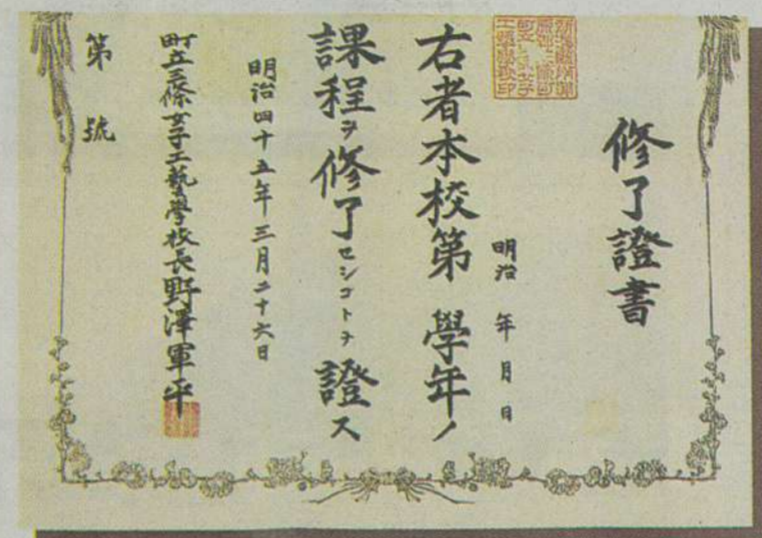 修了證書
明治 年 月 日
右者本校第 學年ノ
課程ヲ修了セシコトヲ證ス
明治四十五年三月二十六日
町立三條女子工藝學校長野澤軍平
第 號